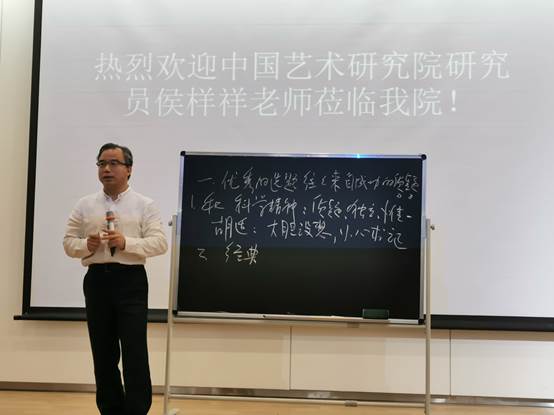 热烈欢迎中国艺术研究院研究
员侯样祥老师莅临我院！
一、优秀的选题往往来自成功的质疑
1. 科学精神：质疑、独立、唯一
胡适：大胆设想，小心求证
2、经典